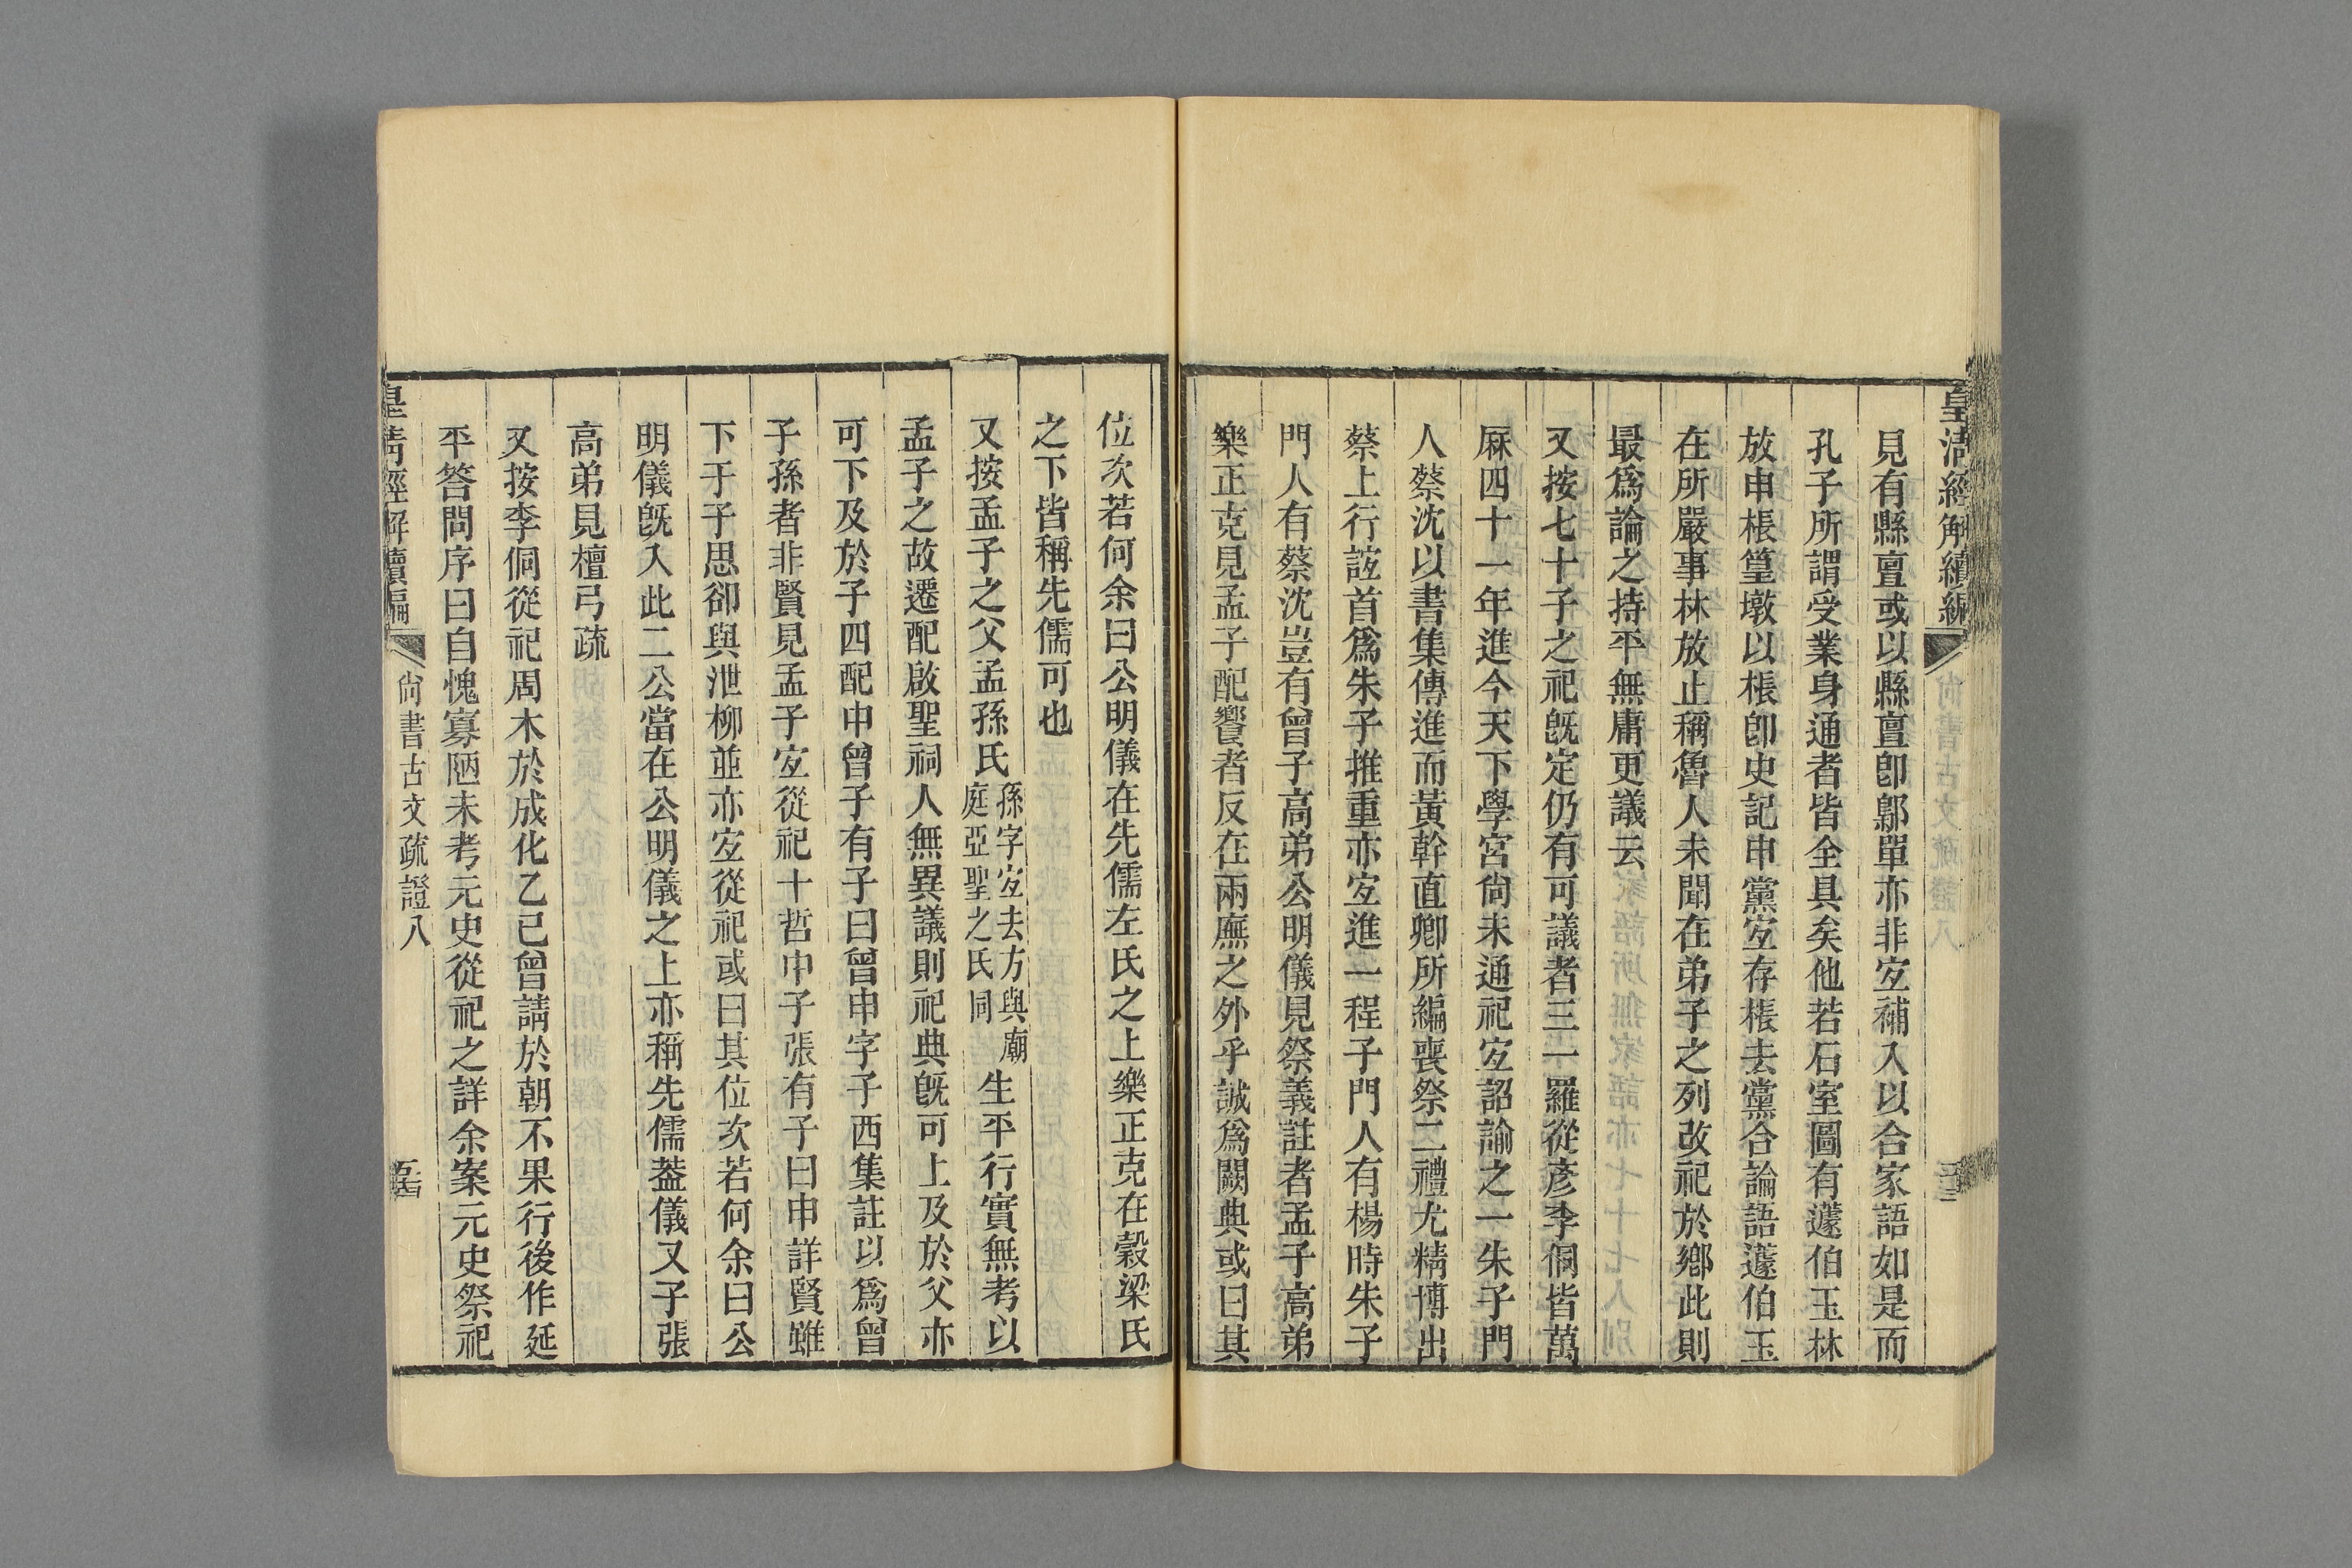 皇清經解續編
見有縣亶或以縣亶卽鄡單亦非宐補入以合家語如是而
孔子所謂受業身通者皆全具矣他若石室圖有蘧伯玉林
放申棖篁墩以棖卽史記申黨宐存棖去黨合論語蘧伯玉
在所嚴事林放止稱魯人未聞在弟子之列改祀於鄉此則
最爲論之持平無庸更議云
又按七十子之祀旣定仍有可議者三一羅從彥李侗皆萬
厤四十一年進今天下學宮尙未通祀宐詔諭之一朱子門
人蔡沈以書集傳進而黃幹直卿所編喪祭二禮尤精博出
蔡上行誼首爲朱子推重亦宐進一程子門人有楊時朱子
門人有蔡沈豈有曾子高弟公明儀見祭義註者孟子高弟
樂正克見孟子配饗者反在兩廡之外乎誠爲闕典或曰其
位次若何余曰公明儀在先儒左氏之上樂正克在穀梁氏
之下皆稱先儒可也
又按孟子之父孟孫氏孫字宐去方與廟庭亞聖之氏同生平行實無考以
孟子之故遷配啟聖祠人無異議則祀典旣可上及於父亦
可下及於子四配中曾子有子曰曾申字子西集註以爲曾
子孫者非賢見孟子宐從祀十哲中子張有子曰申詳賢雖
下于子思卻與泄柳並亦宐從祀或曰其位次若何余曰公
明儀旣入此二公當在公明儀之上亦稱先儒葢儀又子張
高弟見檀弓疏
又按李侗從祀周木於成化乙已曾請於朝不果行後作延
平答問序曰自愧寡陋未考元史從祀之詳余案元史祭祀
皇清經解續編
尙書古文疏證八